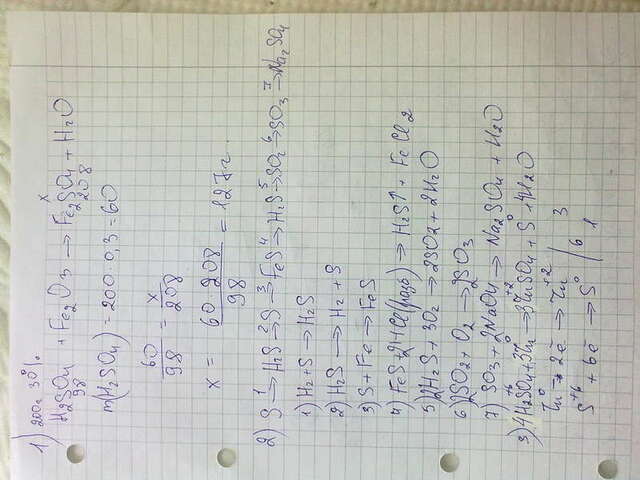 1) 200г 30%
H₂SO₄ + Fe₂O₃ → Fe₂SO₄ + H₂O
98 208 x
m(H₂SO₄) = 200 · 0,3 = 60
60/98 = x/208
x = 60 · 208/98 = 127г.
2) S →¹ H₂S →² S →³ FeS →⁴ H₂S →⁵ SO₂ →⁶ SO₃ →⁷ Na₂SO₄
1) H₂ + S → H₂S
2) H₂S → H₂ + S
3) S + Fe → FeS
4) FeS + 2HCl(разб) → H₂S↑ + FeCl₂
5) 2H₂S + 3O₂ → 2SO₂ + 2H₂O
6) 2SO₂ + O₂ → 2SO₃
7) SO₃ + 2NaOH → Na₂SO₄ + H₂O
3) 4H₂SO₄ + 3Zn → 3ZnSO₄ + S + 4H₂O
Zn⁰ - 2e → Zn⁺² 3
S⁺⁶ + 6e → S⁰ / 6 1